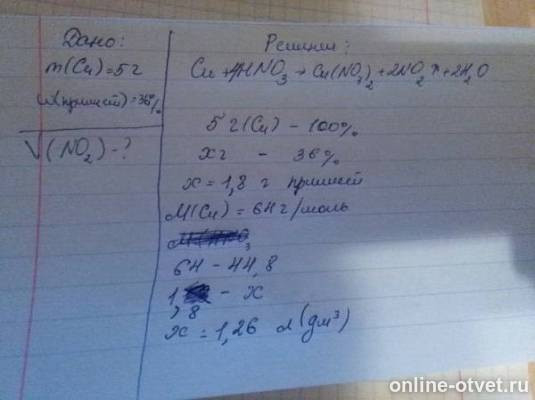 Дано:
m(Cu)=5г
ω(примесей)=36%
V(NO₂)-?
Решение:
Cu+4HNO₃→Cu(NO₃)₂+2NO₂↑+2H₂O
5г(Cu) - 100%
xг - 36%
x=1,8 г примесей
M(Cu)=64г/моль
64-44,8
1,8 - x
x=1,26 л(дм³)
online-otvet.ru